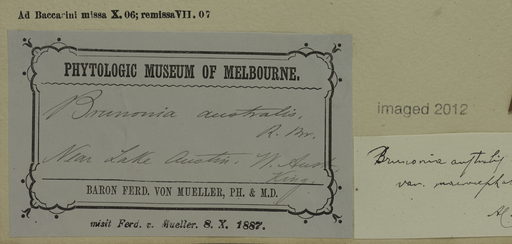 Ad Baccarini missa X. 06; remissa VII. 07
PHYTOLOGIC MUSEUM OF MELBOURNE.
Brunonia australis.
R. Br.
Near Lake Austin. W. Aust.
King
BARON FERD. VON MUELLER, PH. & M.D.
misit Ferd. v. Mueller. 8. X. 1887.
imaged 2012
Brunonia australis
var.